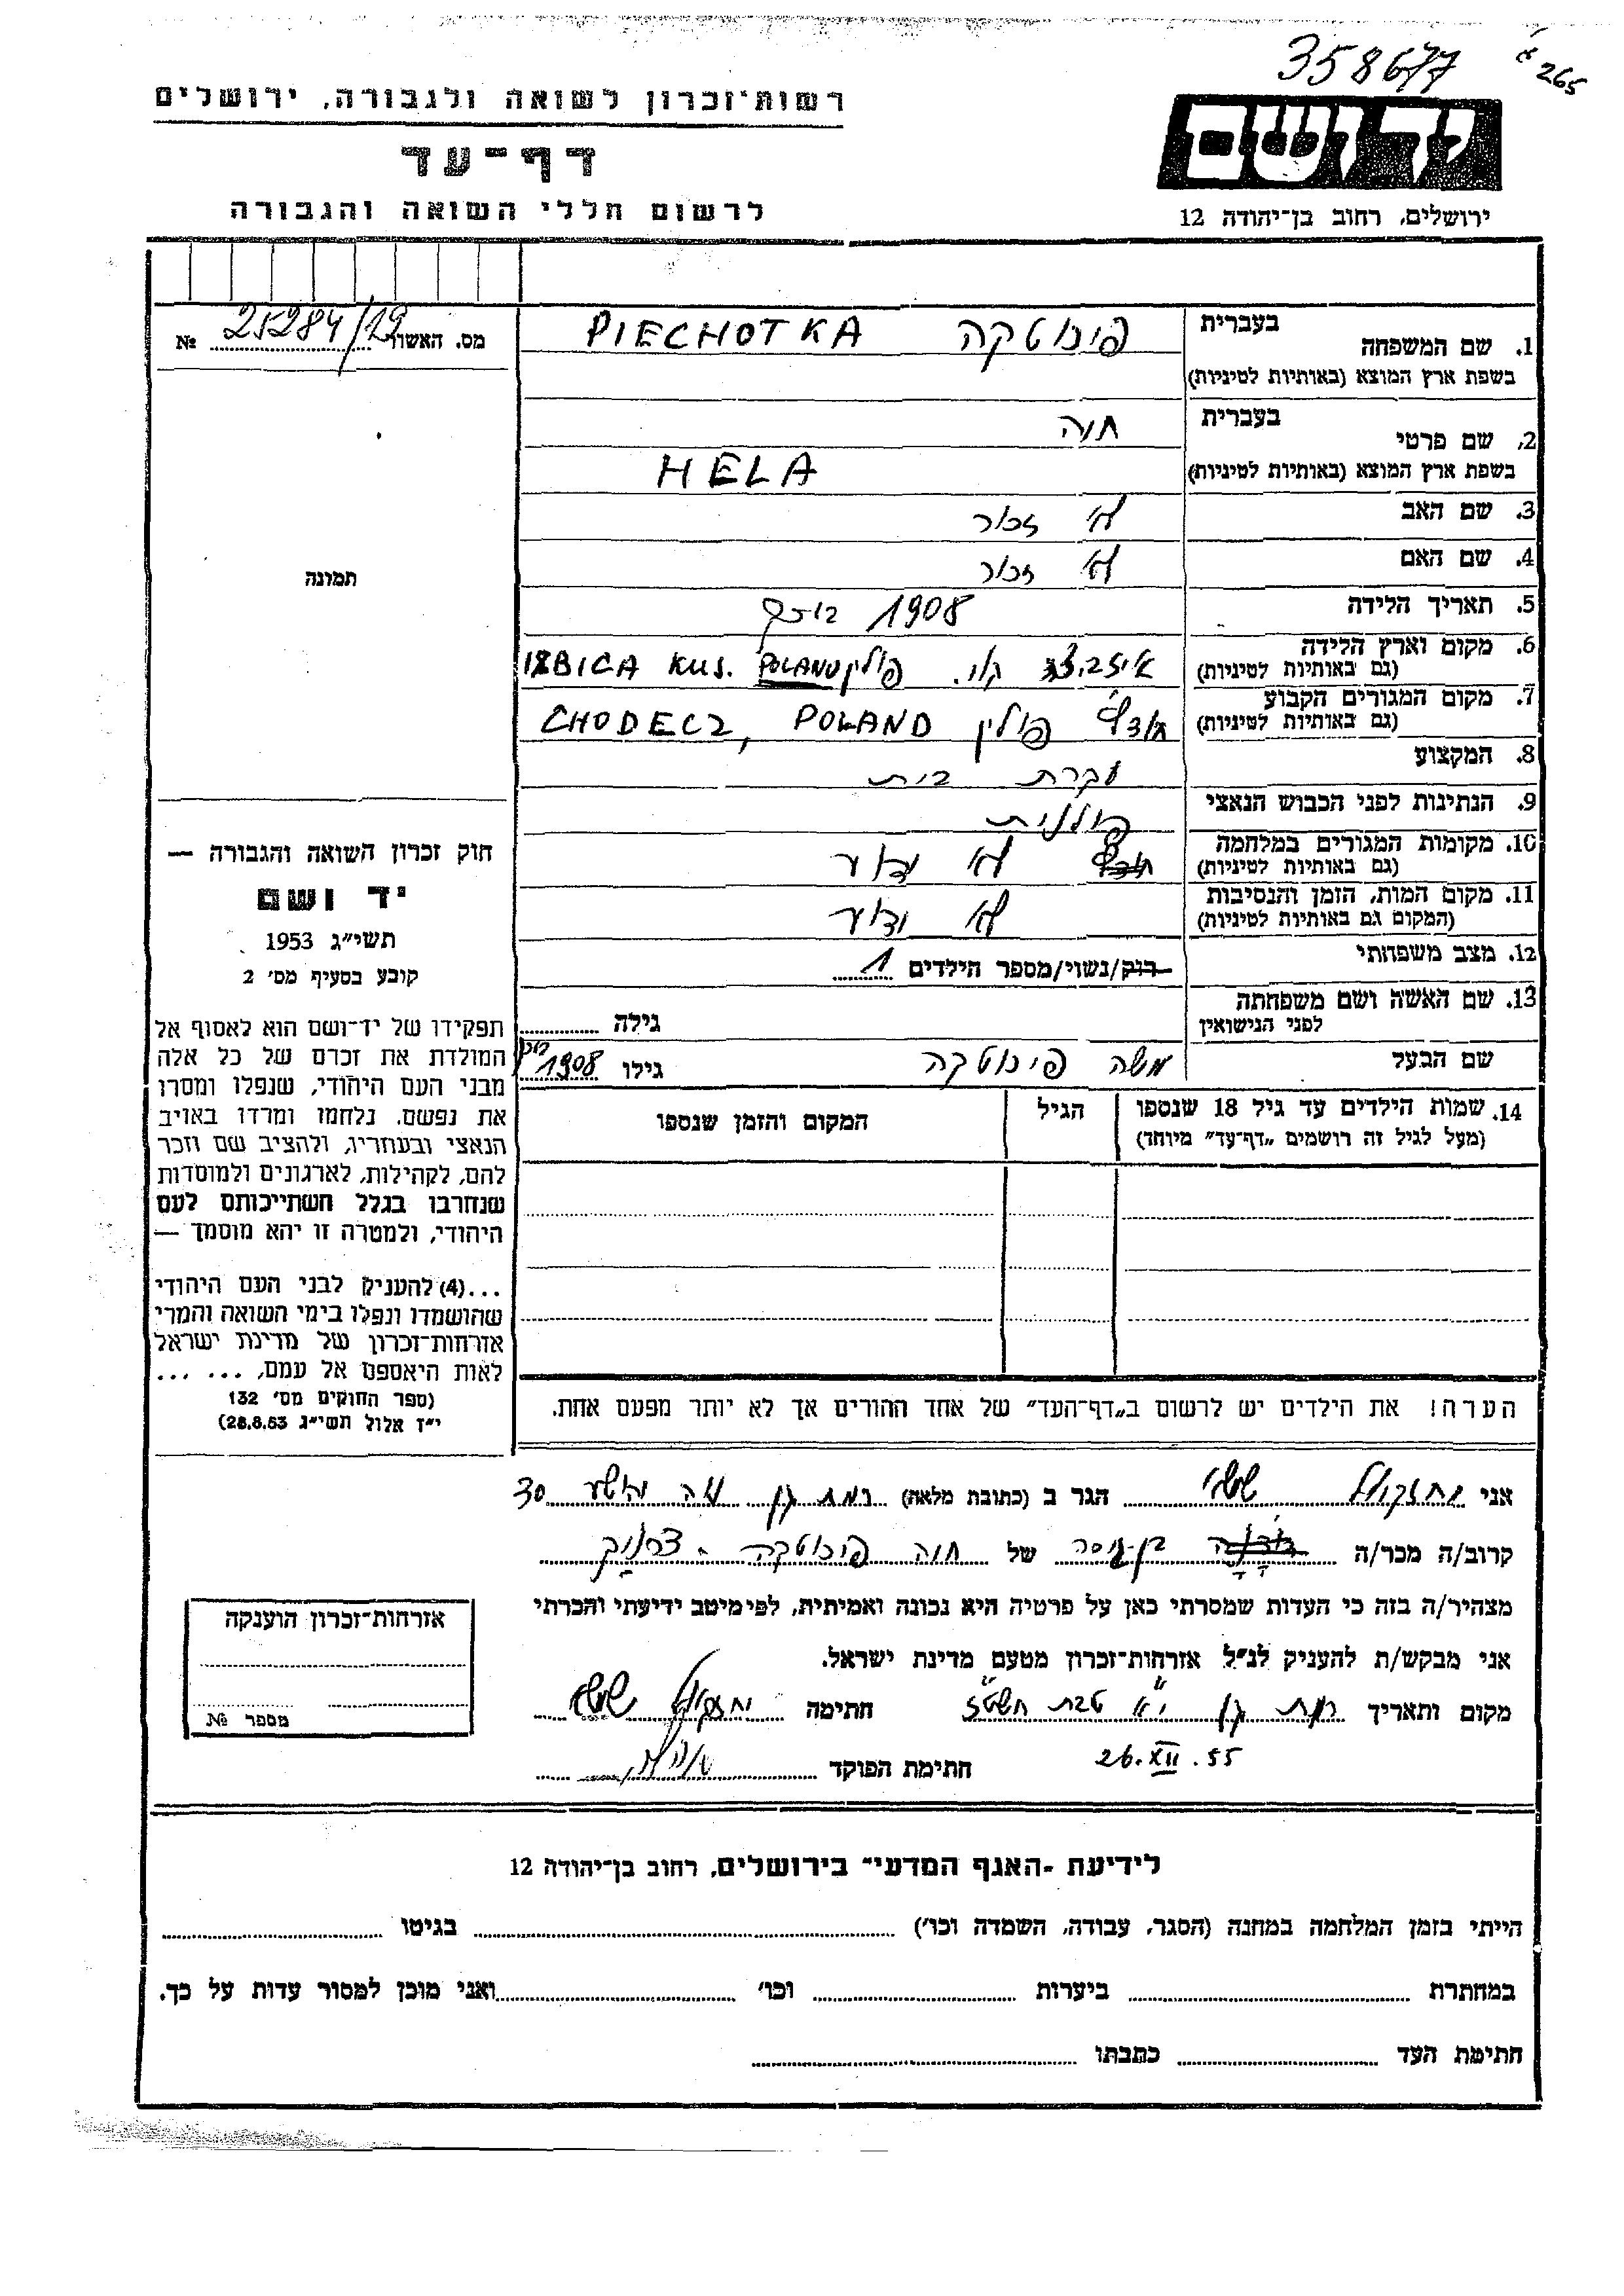 358677 א 265
רשות־זכרון לשואה ולגבורה, ירושלים
יד ושם
דף־עד
לרשום חללי השואה והגבורה
ירושלים, רחוב בן־יהודה 12
מס. האשור 25284/19 №
תמונה
חוק זכרון השואה והגבורה —
יד ושם
תשי״ג 1953
קובע בסעיף מס׳ 2
תפקידו של יד־ושם הוא לאסוף אל
המולדת את זכרם של כל אלה
מבני העם היהודי, שנפלו ומסרו
את נפשם, נלחמו ומרדו באויב
הנאצי ובעוזריו, ולהציב שם וזכר
להם, לקהילות, לארגונים ולמוסדות
שנחרבו בגלל השתייכותם לעם
היהודי, ולמטרה זו יהא מוסמך —
...(4) להעניק לבני העם היהודי
שהושמדו ונפלו בימי השואה והמרי
אזרחות־זכרון של מדינת ישראל
לאות היאספם אל עמם, ... ...
(ספר החוקים מס׳ 132
י״ז אלול תשי״ג 28.8.53)
בעברית
1. שם המשפחה פיכוטקה PIECHOTKA
בשפת ארץ המוצא (באותיות לטיניות)
בעברית
2. שם פרטי חוה
בשפת ארץ המוצא (באותיות לטיניות) HELA
3. שם האב לא זכור
4. שם האם לא זכור
5. תאריך הלידה 1908
6. מקום וארץ הלידה
(גם באותיות לטיניות) קוי. פולין POLAND IZBICA KUJ.
7. מקום המגורים הקבוע
(גם באותיות לטיניות) פולין CHODECZ, POLAND
8. המקצוע עקרת בית
9. הנתינות לפני הכבוש הנאצי פולנית
10. מקומות המגורים במלחמה
(גם באותיות לטיניות) לא ידוע
11. מקום המות, הזמן והנסיבות
(המקום גם באותיות לטיניות) לא ידוע
12. מצב משפחתי רוק/נשוי/מספר הילדים 1
13. שם האשה ושם משפחתה
לפני הנישואין גילה
שם הבעל משה פיכוטקה גילו 1908
14. שמות הילדים עד גיל 18 שנספו הגיל המקום והזמן שנספו
(מעל לגיל זה רושמים „דף־עד״ מיוחד)
הערה! את הילדים יש לרשום ב„דף־העד״ של אחד ההורים אך לא יותר מפעם אחת.
אני יחזקאל הגר ב (כתובת מלאה) רמת גן 30
קרוב/ה מכר/ה בן־גיסה של חוה פיכוטקה
מצהיר/ה בזה כי העדות שמסרתי כאן על פרטיה היא נכונה ואמיתית, לפי מיטב ידיעתי והכרתי
אני מבקש/ת להעניק לנ״ל אזרחות־זכרון מטעם מדינת ישראל.
מקום ותאריך רמת גן י״א טבת תשט״ז חתימה יחזקאל
26.XII.55 חתימת הפוקד
אזרחות־זכרון הוענקה
מספר №
לידיעת ־האגף המדעי״ בירושלים, רחוב בן־יהודה 12
הייתי בזמן המלחמה במחנה (הסגר, עבודה, השמדה וכו׳) בגיטו
במחתרת ביערות וכו׳ ואני מוכן למסור עדות על כך.
חתימת העד כתבתו